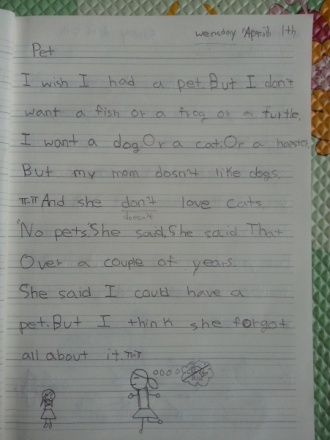 wensday April 1th
Pet
I wish I had a pet. But I don't
want a fish or a frog or a turtle.
I want a dog Or a cat. Or a hamster
But my mom dosn't like dogs.
π.π And she don't love cats.
doesn't
"No pets" She said, She said That
Over a couple of years.
She said I could have a
pet. But I think she forgot
all about it. π.π